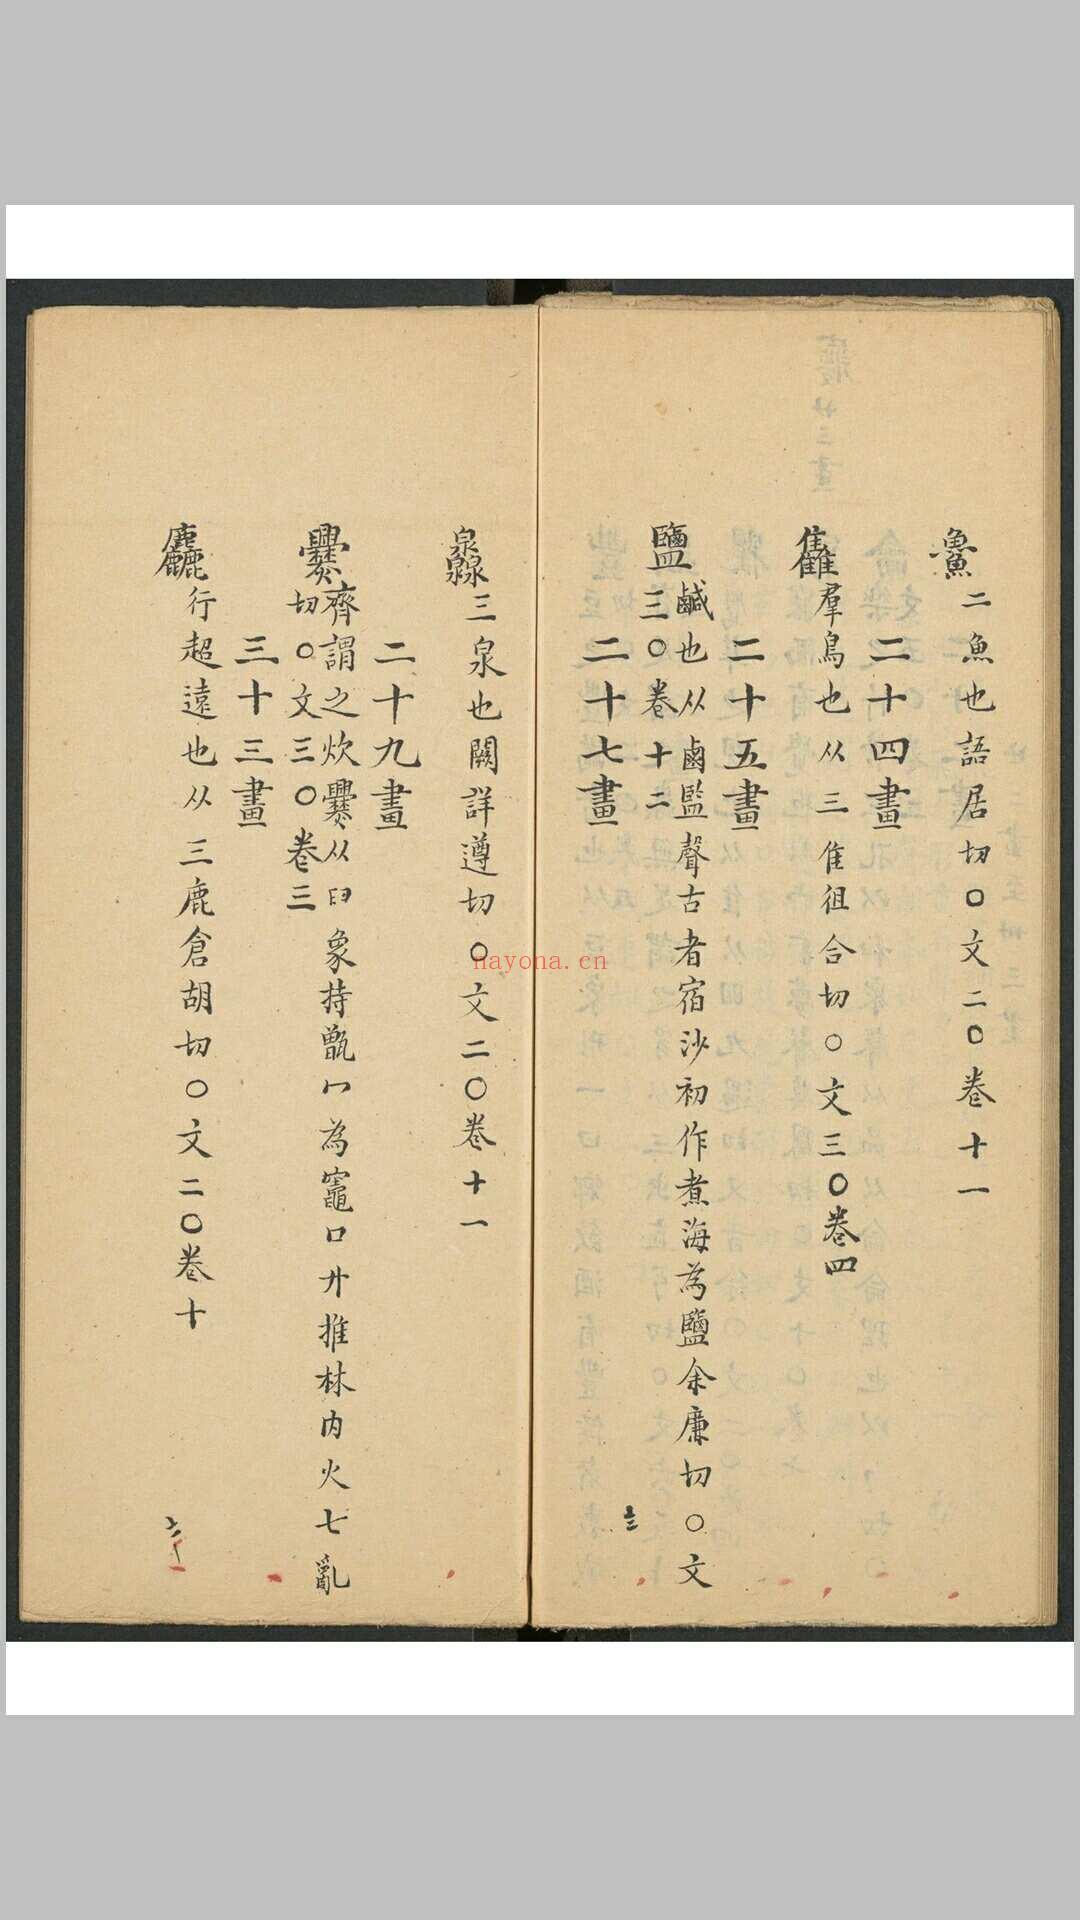 二魚也語居切〇文二〇卷十一
二十四畫
雥羣鳥也从三隹徂合切〇文三〇卷四
二十五畫
鹽鹹也从鹵監聲古者宿沙初作煮海為鹽余廉切〇文
三〇卷十二
二十七畫
灥三泉也闕詳遵切〇文二〇卷十一
二十九畫
爨齊謂之炊爨从𦥑象持甑冖為竈口廾推林内火七亂
切〇文三〇卷三
三十三畫
麤行超遠也从三鹿倉胡切〇文二〇卷十
nayona.cn